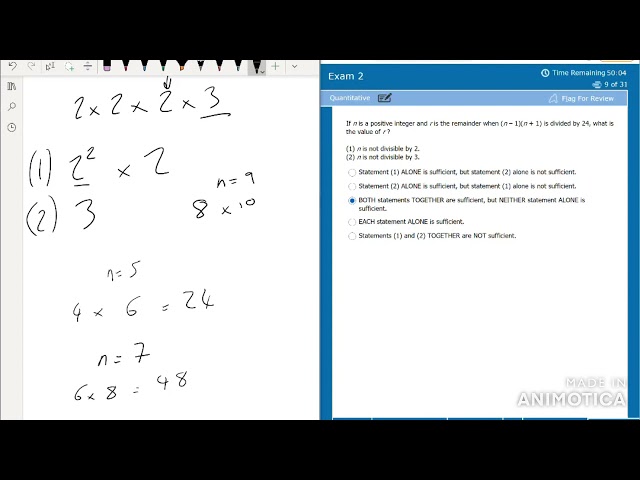 2 × 2 × 2 × 3
(1) 2² × 2
n = 9
(2) 3
8 × 10
n = 5
4 × 6 = 24
n = 7
6 × 8 = 48
Exam 2
Time Remaining 50:04
9 of 31
Quantitative
Flag For Review
If n is a positive integer and r is the remainder when (n – 1)(n + 1) is divided by 24, what is
the value of r ?
(1) n is not divisible by 2.
(2) n is not divisible by 3.
Statement (1) ALONE is sufficient, but statement (2) alone is not sufficient.
Statement (2) ALONE is sufficient, but statement (1) alone is not sufficient.
BOTH statements TOGETHER are sufficient, but NEITHER statement ALONE is
sufficient.
EACH statement ALONE is sufficient.
Statements (1) and (2) TOGETHER are NOT sufficient.
MADE IN
ANIMOTICA